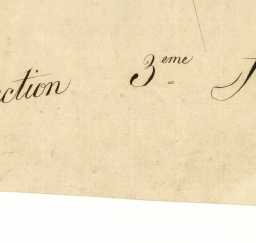 ction 3eme